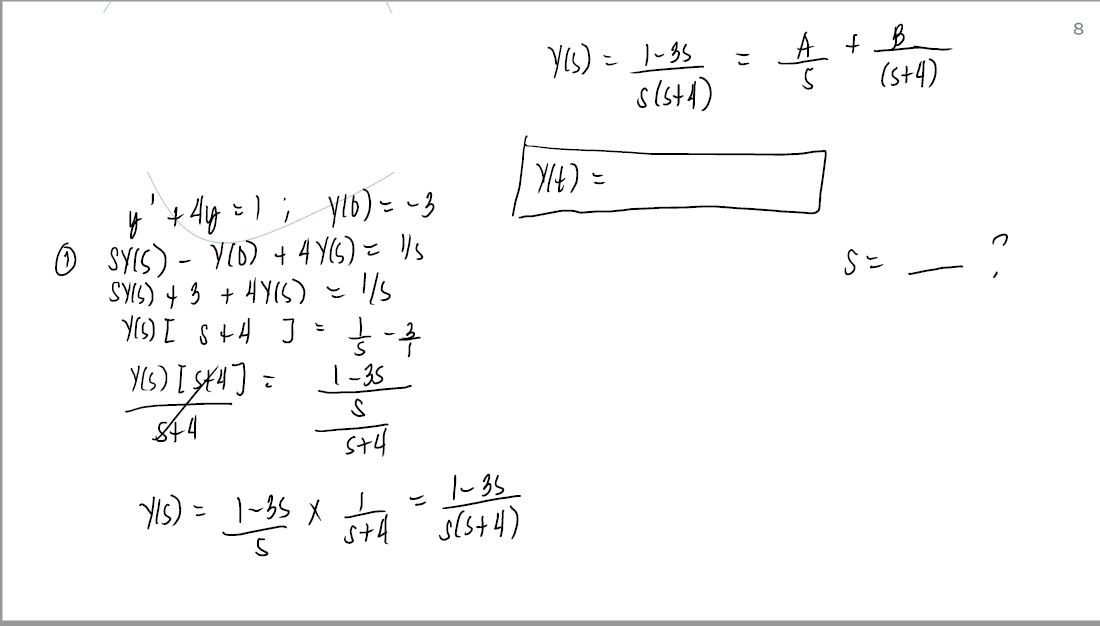 8
Y(s) = \frac{1-3s}{s(s+4)} = \frac{A}{s} + \frac{B}{(s+4)}
Y(t) =
y' + 4y = 1 ; Y(0) = -3
① SY(s) - Y(0) + 4Y(s) = 1/s
SY(s) + 3 + 4Y(s) = 1/s
Y(s) [ s+4 ] = \frac{1}{s} - \frac{3}{1}
\frac{Y(s) [s+4]}{s+4} = \frac{\frac{1-3s}{s}}{s+4}
Y(s) = \frac{1-3s}{s} × \frac{1}{s+4} = \frac{1-3s}{s(s+4)}
S = __ ?